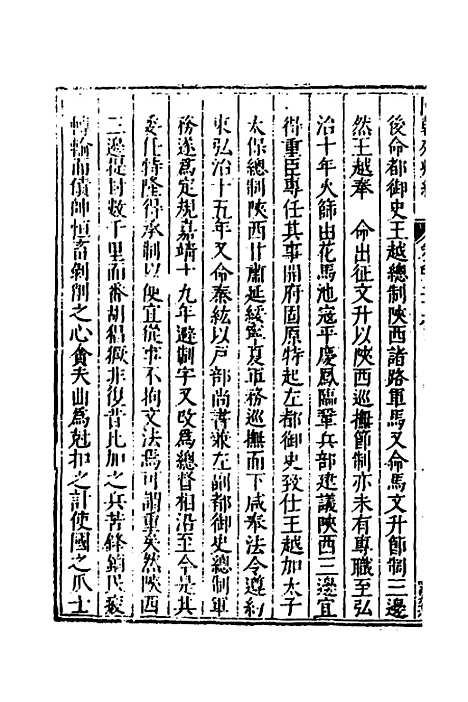 後命都御史王越總制陝西諸路軍馬又命馬文升節制三邊
然王越奉 命出征文升以陝西巡撫節制亦未有專職至弘
治十年火篩由花馬池寇平慶鳳臨鞏兵部建議陝西三邊宜
得重臣專任其事開府固原特起左都御史致仕王越加太子
太保總制陝西甘肅延綏寧夏軍務巡撫而下咸奉法令遵約
束弘治十五年又命秦紘以戶部尚書兼左副都御史總制軍
務遂爲定規嘉靖十九年避制字又改爲總督相沿至今是其
委任特隆得承制以便宜從事不拘文法焉可謂重矣然陝西
三邊提封數千里而番胡猖獗非復昔比加之兵苦鋒鏑民疲
轉輸而債帥恒畜剝削之心貪夫曲爲尅扣之計使國之爪士